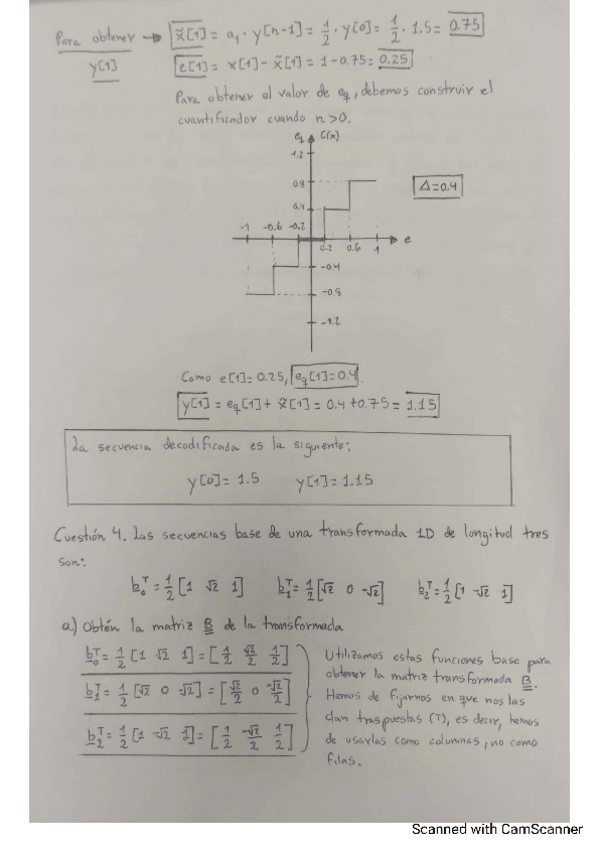 Para obtener → x̃[1] = a₁ · y[n-1] = 1/2 · y[0] = 1/2 · 1.5 = 0.75
y[1] e[1] = x[1] - x̃[1] = 1 - 0.75 = 0.25
Para obtener el valor de eq, debemos construir el
cuantificador cuando n>0.
eq C(x)
1.2
0.8
Δ=0.4
0.4
-1 -0.6 -0.2
0.2 0.6 1 e
-0.4
-0.8
-1.2
Como e[1]=0.25, eq[1]=0.4.
y[1] = eq[1] + x̃[1] = 0.4 + 0.75 = 1.15
La secuencia decodificada es la siguiente:
y[0] = 1.5 y[1] = 1.15
Cuestión 4. Las secuencias base de una transformada 1D de longitud tres
son:
b₀ᵀ = 1/2 [1 √2 1] b₁ᵀ = 1/2 [√2 0 -√2] b₂ᵀ = 1/2 [1 -√2 1]
a) Obtén la matriz B de la transformada
b₀ᵀ = 1/2 [1 √2 1] = [1/2 √2/2 1/2]
b₁ᵀ = 1/2 [√2 0 -√2] = [√2/2 0 -√2/2]
b₂ᵀ = 1/2 [1 -√2 1] = [1/2 -√2/2 1/2]
Utilizamos estas funciones base para
obtener la matriz transformada B.
Hemos de fijarnos en que nos las
dan traspuestas (T), es decir, hemos
de usarlas como columnas, no como
filas.
Scanned with CamScanner